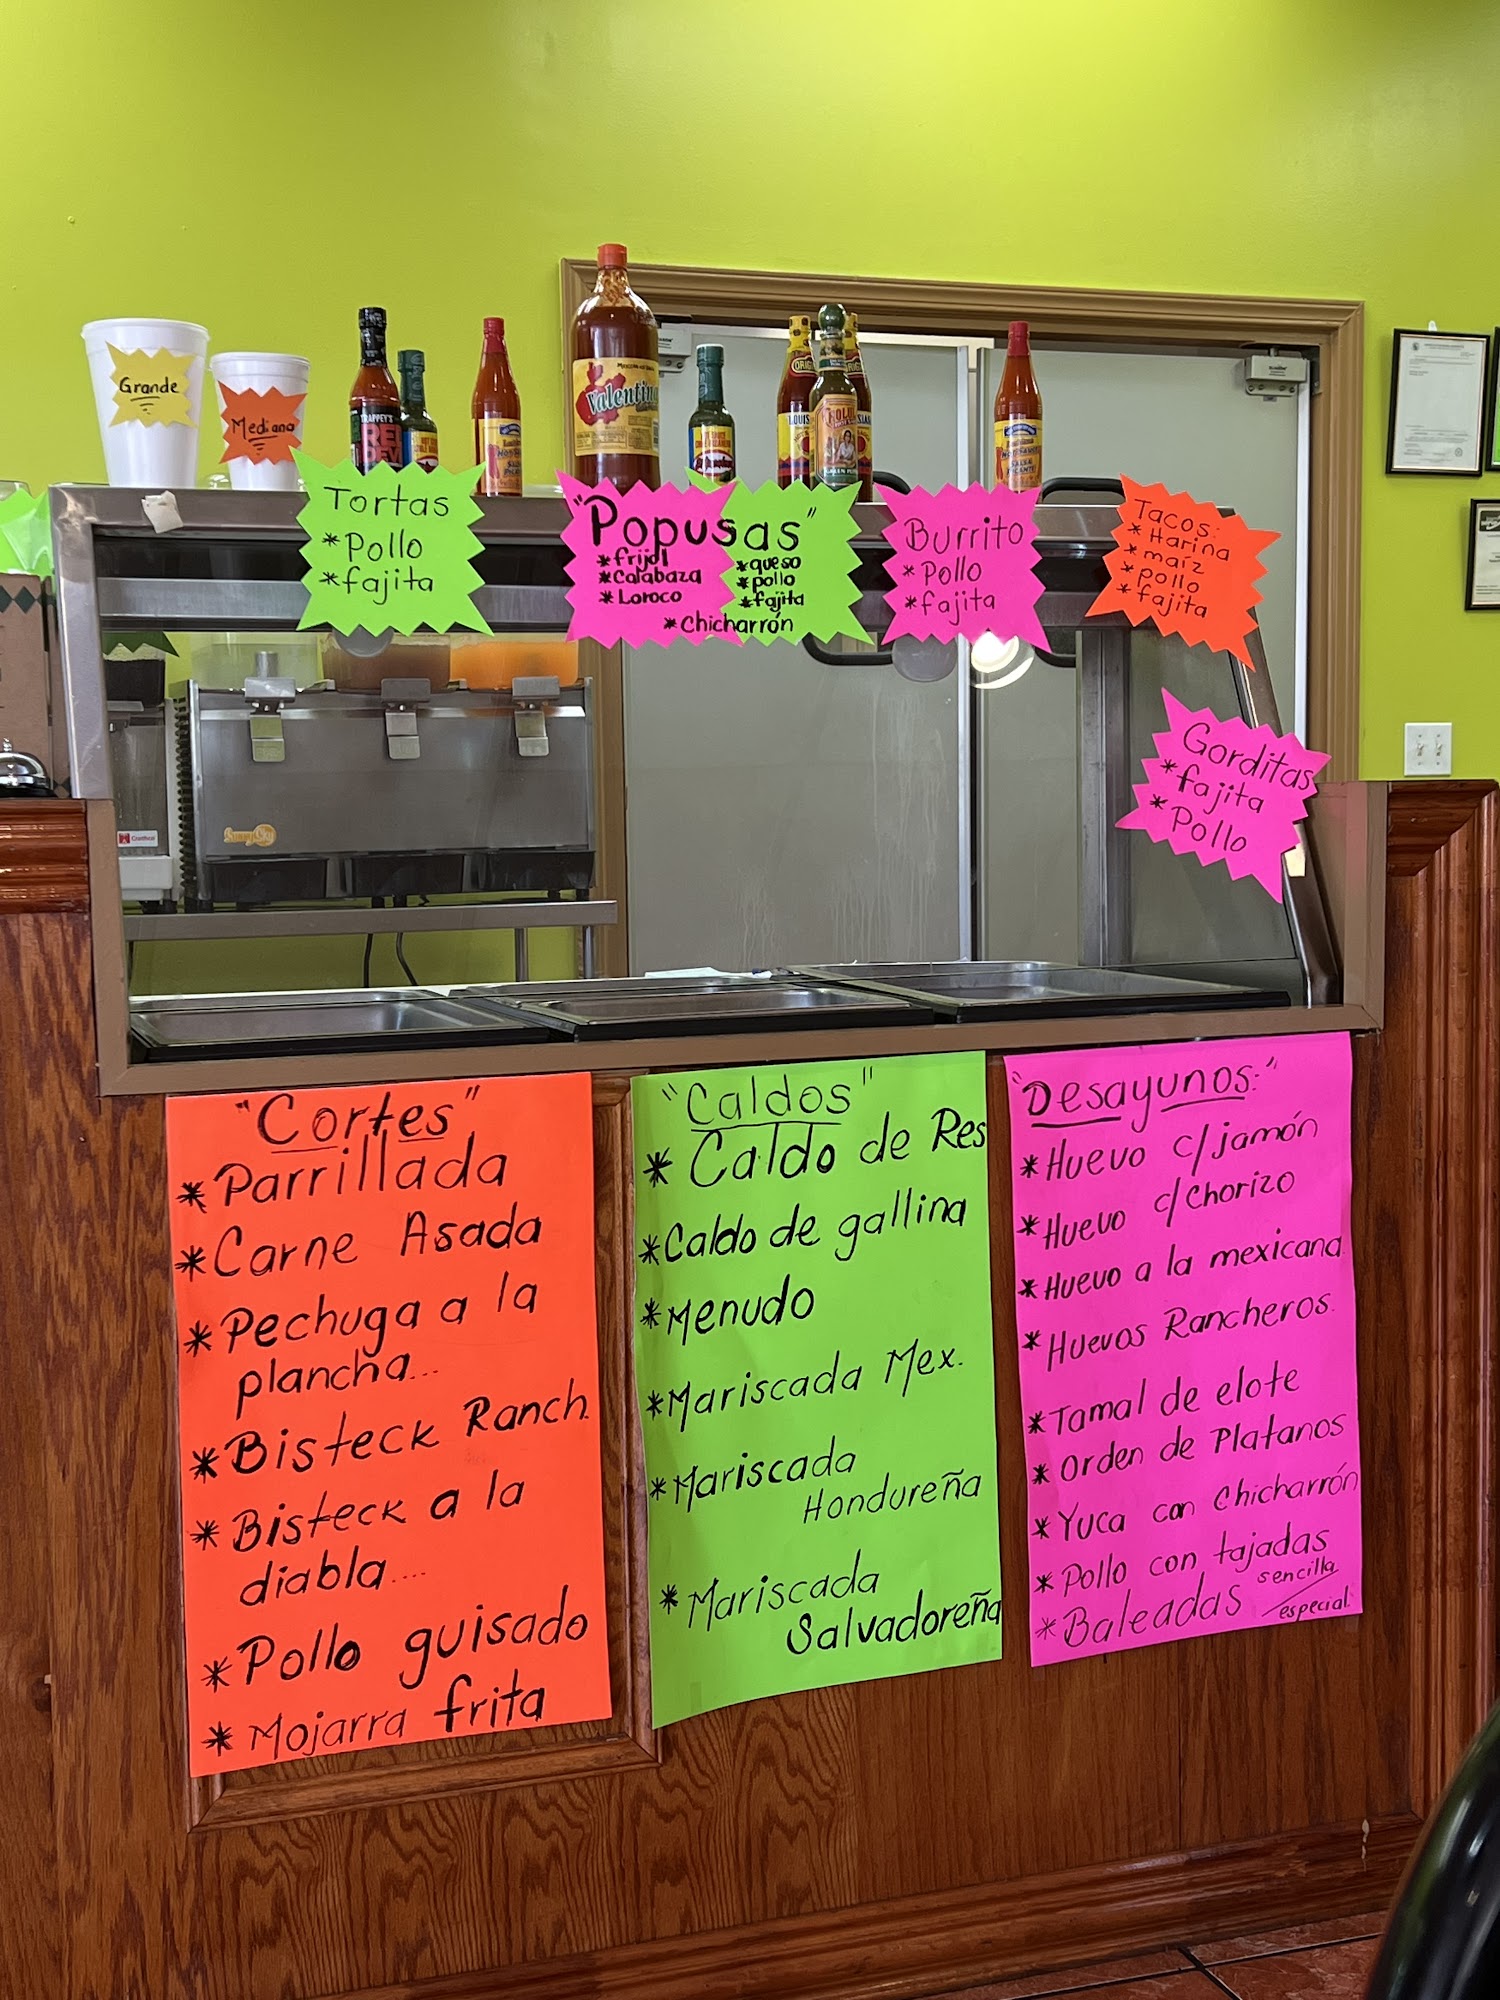 Grande
Mediana
TRAPPEY'S
RED
Valentina
LOUIS
ORIG
Tortas
*Pollo
*fajita
"Popusas"
*frijol
*Calabaza
*Loroco
*queso
*pollo
*fajita
*Chicharrón
Burrito
*Pollo
*fajita
Tacos:
*Harina
*maíz
*pollo
*fajita
Gorditas
*fajita
*Pollo
"Cortes"
*Parrillada
*Carne Asada
*Pechuga a la
plancha...
*Bisteck Ranch.
*Bisteck a la
diabla....
*Pollo guisado
*Mojarra frita
"Caldos"
*Caldo de Res
*Caldo de gallina
*Menudo
*Mariscada Mex.
*Mariscada
Hondureña
*Mariscada
Salvadoreña
"Desayunos:"
*Huevo c/jamón
*Huevo c/chorizo
*Huevo a la mexicana.
*Huevos Rancheros.
*Tamal de elote
*Orden de Platanos
*Yuca con Chicharrón
*Pollo con tajadas
*Baleadas sencilla/especial.